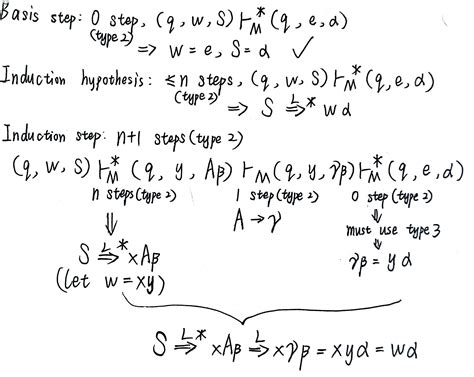 Basis step: 0 step, (q, w, S) ⊢*M (q, e, α)
(type 2)
⇒ w = e, S = α ✓
Induction hypothesis: ≤n steps, (q, w, S) ⊢*M (q, e, α)
(type 2)
⇒ S ᴸ⇒* wα
Induction step: n+1 steps (type 2)
(q, w, S) ⊢*M (q, y, Aβ) ⊢M (q, y, γβ) ⊢*M (q, e, α)
n steps (type 2) 1 step (type 2) 0 step (type 2)
⇓ A → γ ⇓
must use type 3
S ᴸ⇒* xAβ ⇓
(let w = xy) γβ = yα
S ᴸ⇒* xAβ ᴸ⇒ xγβ = xyα = wα